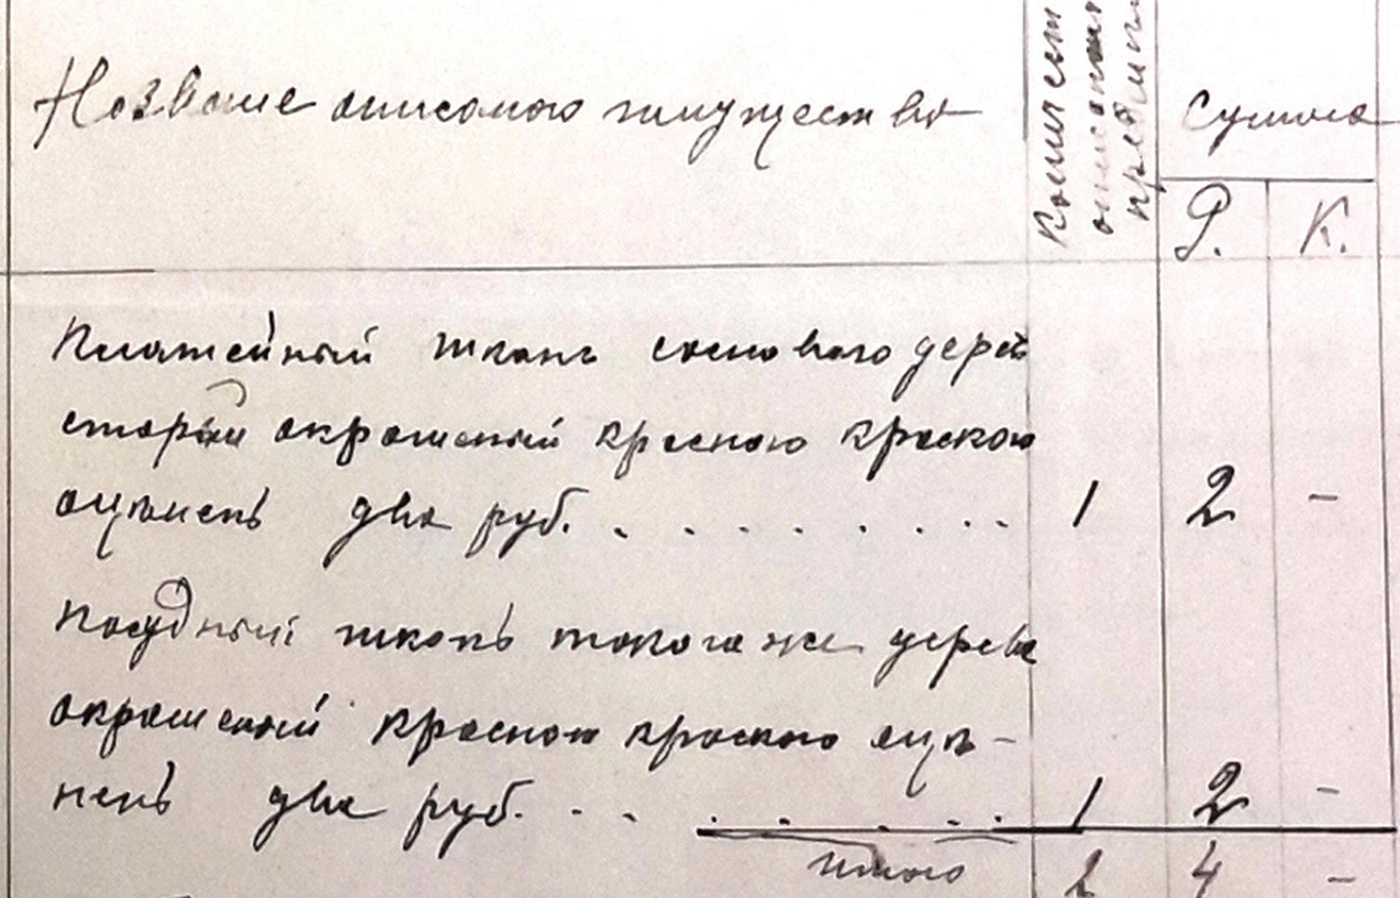 Название описаного имущество
Количест
описаных
предмет
Сумма
Р. К.
Платейный шкапъ сосноваго дерев
старый окрашеный красною краскою
оцѣненъ два руб. . . . . . . . . 1 2 -
Посудный шкапъ такого же дерева
окрашеный красною краскою оцѣ-
ненъ два руб. . . . . . . . 1 2 -
итого 2 4 -